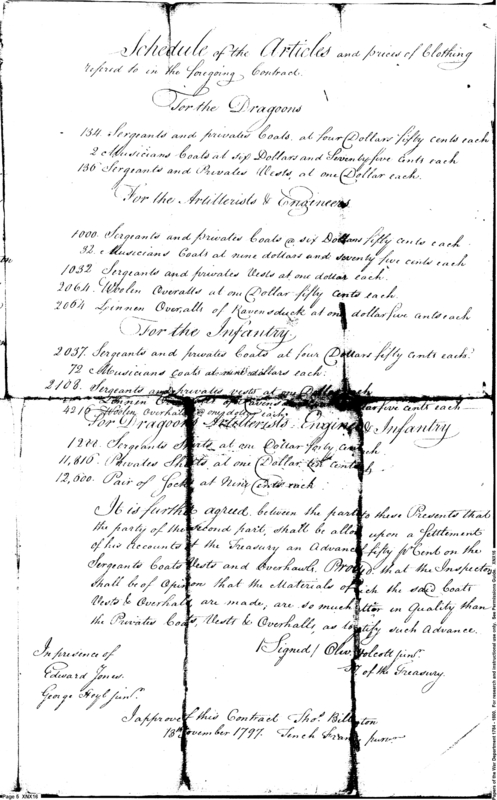 Schedule of the Articles and prices of Clothing
refered to in the foregoing Contract.
For the Dragoons
134 Sergeants and privates Coats, at four Dollars fifty cents each
2 Musicians Coats at six Dollars and Seventy five Cents each
136 Sergeants and Privates Vests, at one Dollar each.
For the Artillerists & Engineers
1000 Sergeants and privates Coats @ six Dollars fifty cents each
32 Musicians Coats at nine dollars and seventy five cents each
1032 Sergeants and privates Vests at one dollar each.
2064 Woolen Overalls at one Dollar fifty cents each
2064 Linnen Overalls of Ravensduck at one dollar five cents each
For the Infantry
2037 Sergeants and privates Coats at four Dollars fifty cents each
72 Musicians coats at dollars each
2108 Sergeants and privates vests at one
Linnen five cents each
4216 Woolen overhalls @ one dollar each
For Dragoons Artillerists Engineers & Infantry
1244 Sergeants Shirts at one Dollar forty cents each
11,816 Privates Shirts at one Dollar cents each
12,600 Pair of Socks at Nine Cents each
It is further agreed between the parties to these Presents that
the party of the second part, shall be allowed upon a Settlement
of his accounts at the Treasury an Advance fifty pr Cent on the
Sergeants Coats Vests and Overhalls, Provided that the Inspector
shall be of Opinion that the Materials of which the said Coats
Vests & Overhalls are made, are so much better in Quality than
the Privates Coats, Vests & Overhalls, as to justify such Advance.
(Signed) Oliv. Wolcott junr.
Sy of the Treasury.
In presence of
Edward Jones
George Heyl junr.
I approve of this Contract Thos. Billington
18th November 1797. Tench Francis purvr.
Page 5 XNX16